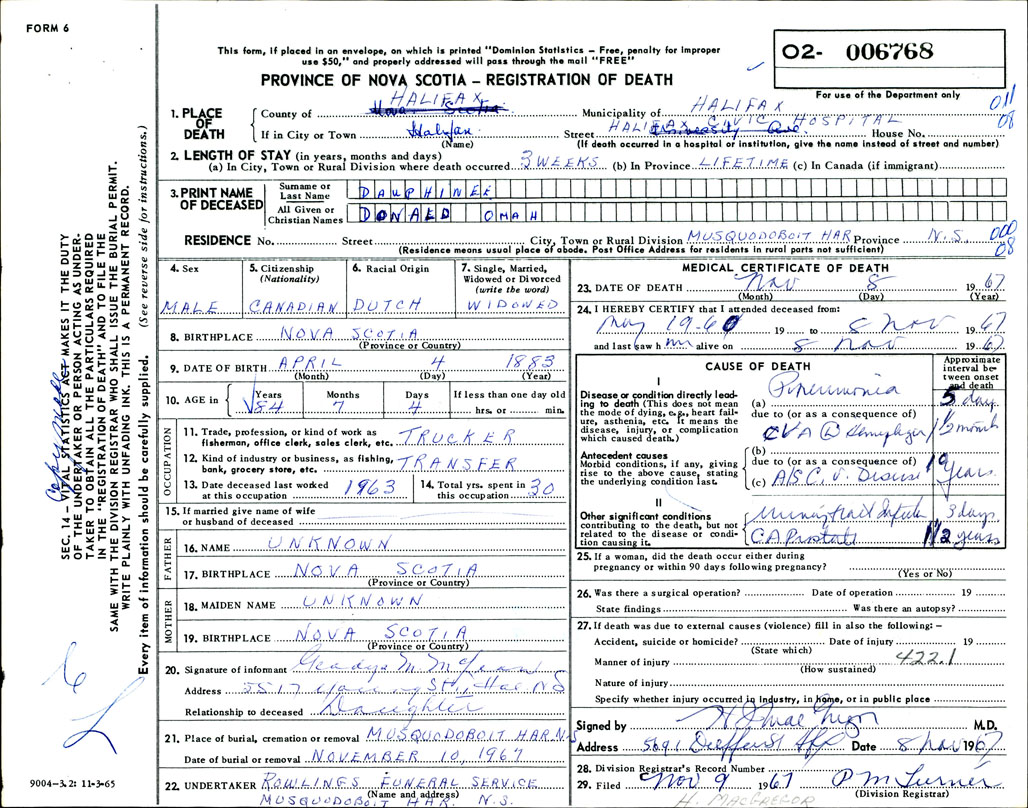 FORM 6
This form, if placed in an envelope, on which is printed "Dominion Statistics – Free, penalty for improper
use $50," and properly addressed will pass through the mail "FREE"
O2- 006768
PROVINCE OF NOVA SCOTIA – REGISTRATION OF DEATH
For use of the Department only
011
08
1. PLACE OF DEATH
County of HALIFAX Nova Scotia
Municipality of HALIFAX
If in City or Town Halifax
(Name)
Street HALIFAX CIVIC HOSPITAL University Ave House No.
(If death occurred in a hospital or institution, give the name instead of street and number)
2. LENGTH OF STAY (in years, months and days)
(a) In City, Town or Rural Division where death occurred 3 WEEKS (b) In Province LIFETIME (c) In Canada (if immigrant)
3. PRINT NAME OF DECEASED
Surname or Last Name DAUPHINEE
All Given or Christian Names DONALD OMAH
RESIDENCE No. Street City, Town or Rural Division MUSQUODOBOIT HAR Province N.S.
(Residence means usual place of abode. Post Office Address for residents in rural parts not sufficient)
000
08
4. Sex
MALE
5. Citizenship (Nationality)
CANADIAN
6. Racial Origin
DUTCH
7. Single, Married, Widowed or Divorced (write the word)
WIDOWED
8. BIRTHPLACE NOVA SCOTIA
(Province or Country)
9. DATE OF BIRTH APRIL 4 1883
(Month) (Day) (Year)
10. AGE in
Years Months Days If less than one day old
84 7 4 hrs. or min.
OCCUPATION
11. Trade, profession, or kind of work as
fisherman, office clerk, sales clerk, etc. TRUCKER
12. Kind of industry or business, as fishing,
bank, grocery store, etc. TRANSFER
13. Date deceased last worked
at this occupation 1963
14. Total yrs. spent in
this occupation 30
15. If married give name of wife
or husband of deceased
FATHER
16. NAME UNKNOWN
17. BIRTHPLACE NOVA SCOTIA
(Province or Country)
MOTHER
18. MAIDEN NAME UNKNOWN
19. BIRTHPLACE NOVA SCOTIA
(Province or Country)
20. Signature of informant Gladys M.
Address 5517 St., Hal NS
Relationship to deceased Daughter
21. Place of burial, cremation or removal MUSQUODOBOIT HAR N.S
Date of burial or removal NOVEMBER 10, 1967
22. UNDERTAKER ROWLINGS FUNERAL SERVICE
(Name and address)
MUSQUODOBOIT HAR. N.S.
MEDICAL CERTIFICATE OF DEATH
23. DATE OF DEATH Nov 8 1967
(Month) (Day) (Year)
24. I HEREBY CERTIFY that I attended deceased from:
May 19-60 19 to 8 Nov 1967
and last saw him alive on 8 Nov 1967
CAUSE OF DEATH
Approximate interval between onset and death
I
Disease or condition directly leading to death (This does not mean
the mode of dying, e.g., heart failure, asthenia, etc. It means the
disease, injury, or complication
which caused death.)
(a) Pneumonia 5 days
due to (or as a consequence of)
CVA Hemiplegia 1/2 month
Antecedent causes
Morbid conditions, if any, giving
rise to the above cause, stating
the underlying condition last.
(b)
due to (or as a consequence of)
(c) years
II
Other significant conditions
contributing to the death, but not
related to the disease or condition causing it.
3 days
CA Prostate years
25. If a woman, did the death occur either during
pregnancy or within 90 days following pregnancy?
(Yes or No)
26. Was there a surgical operation? Date of operation 19
State findings Was there an autopsy?
27. If death was due to external causes (violence) fill in also the following: –
Accident, suicide or homicide? Date of injury 19
(State which)
Manner of injury 422.1
(How sustained)
Nature of injury
Specify whether injury occurred in industry, in home, or in public place
Signed by M.D.
Address 5691 Date 8 Nov 1967
28. Division Registrar's Record Number
29. Filed Nov 9 1967 P M Turner
(Division Registrar)
H. MACGREGOR
SEC. 14 – VITAL STATISTICS ACT MAKES IT THE DUTY
OF THE UNDERTAKER OR PERSON ACTING AS UNDERTAKER TO OBTAIN ALL THE PARTICULARS REQUIRED
IN THE "REGISTRATION OF DEATH" AND TO FILE THE
SAME WITH THE DIVISION REGISTRAR WHO SHALL ISSUE THE BURIAL PERMIT.
WRITE PLAINLY WITH UNFADING INK. THIS IS A PERMANENT RECORD.
Every item of information should be carefully supplied. (See reverse side for instructions.)
9004-3.2: 11-3-65